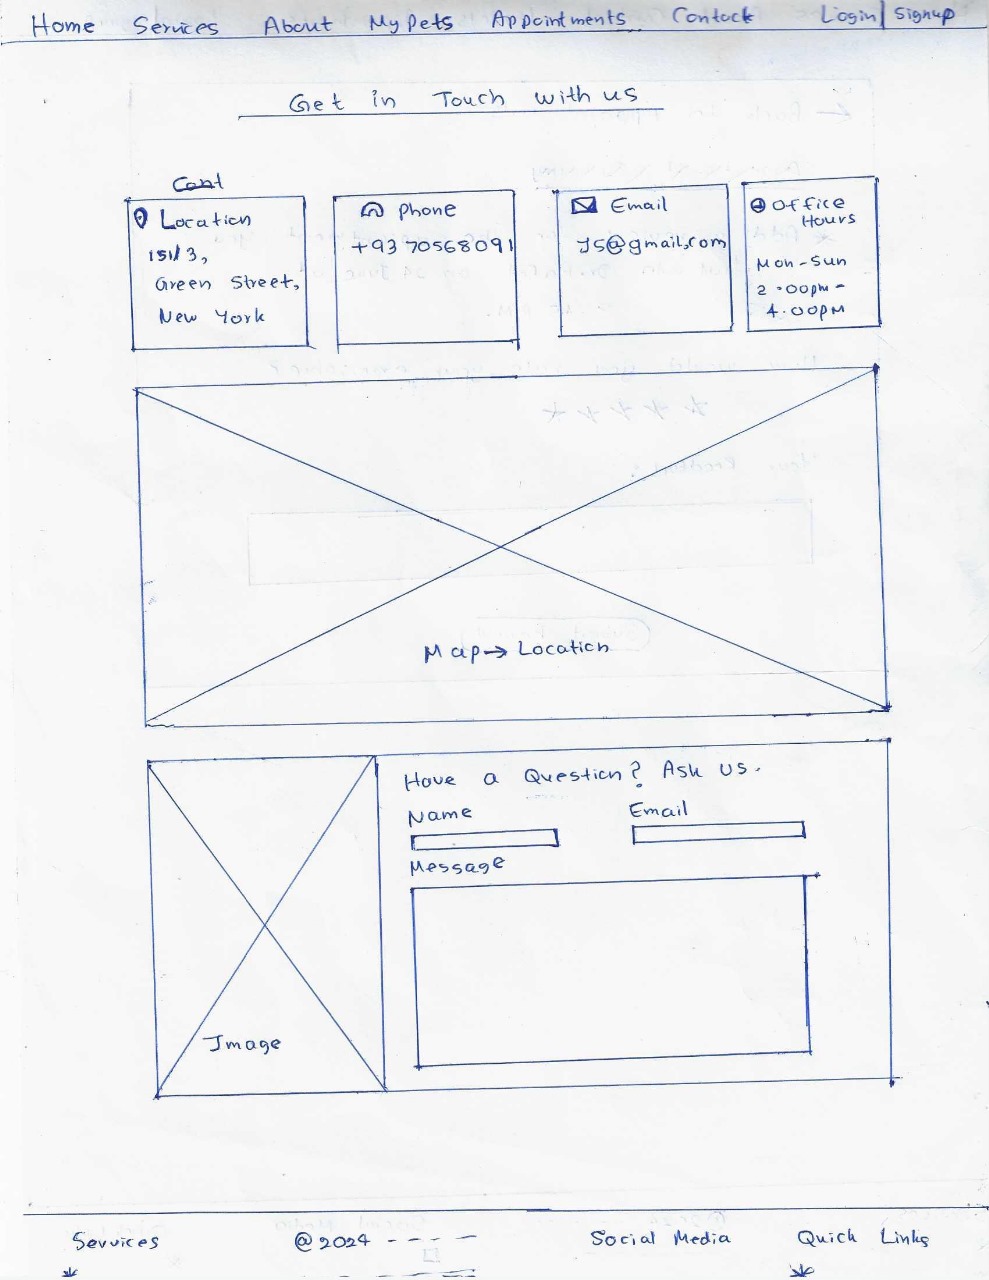 Home Services About My Pets Appointments Contact Login| Signup
Get in Touch with us
Location
151/3,
Green Street,
New York
Phone
+93 70568091
Email
JS@gmail.com
Office
Hours
Mon-Sun
2.00pm -
4.00PM
Map→ Location
Image
Have a Question? Ask us.
Name Email
Message
Services @2024 ---- Social Media Quick Links